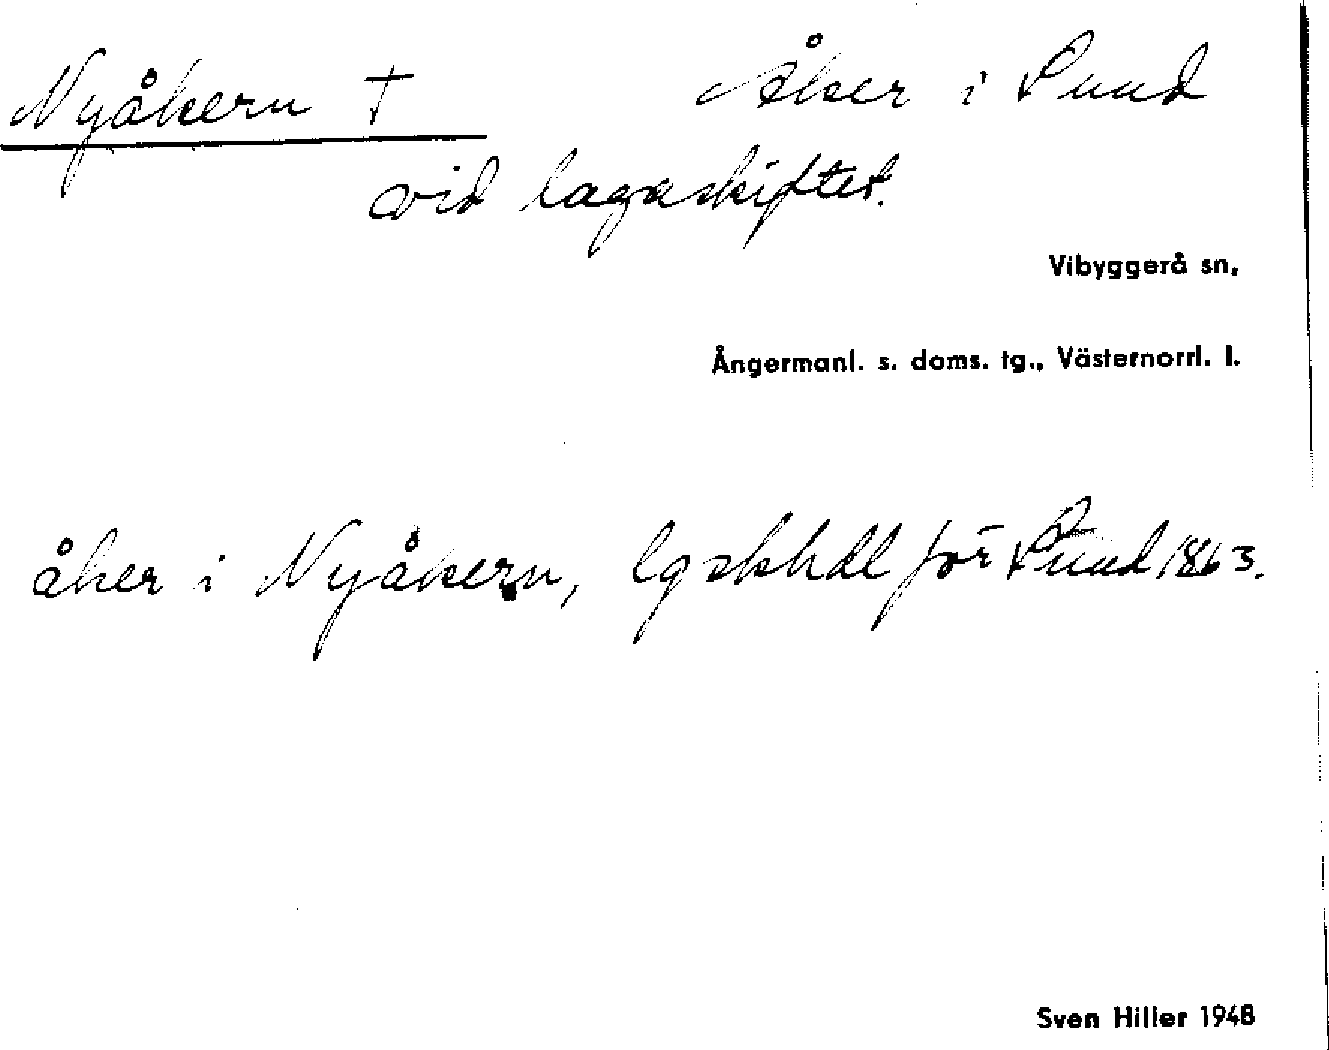 Nyåkern † Åker i Sund
vid lagaskiftet.
Vibyggerå sn.
Ångermanl. s. doms. tg., Västernorrl. l.
åker i Nyåkern, lgskhdl för Sund 1863.
Sven Hiller 1948